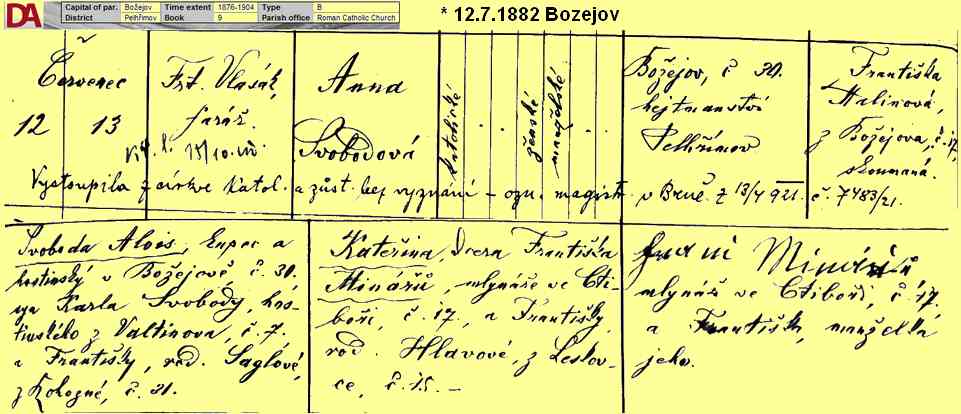 DA
Capital of par. Božejov Time extent 1876-1904 Type B
District Pelhřimov Book 9 Parish office Roman Catholic Church
* 12.7.1882 Bozejov
Červenec
12 13
Frt. Vlasák,
farář.
15/10
Anna
Svobodová
katolické
ženské
manželské
Božejov, č 30.
hejtmanství
Pelhřimov
Františka
Malinová,
z Božejova, č. 17,
zkoumaná.
Vystoupila z církve katol. a zůst. bez vyznání – ozn. magistr. v Brně. z 13/4 921. č. 7483/21.
Svoboda Alois, kupec a
hostinský v Božejově č. 30.
syn Karla Svobody, hos-
tinského z Valtinova, č. 7,
a Františky, roz.
č. 31.
Kateřina, dcera Františka
Mináře, mlynáře ve Cti-
boři, č. 17, a Františky
roz. Hlavové, z Leskov-
ce, č. 15. –
mlynář ve Ctiboři, č. 17,
a manželka
jeho.